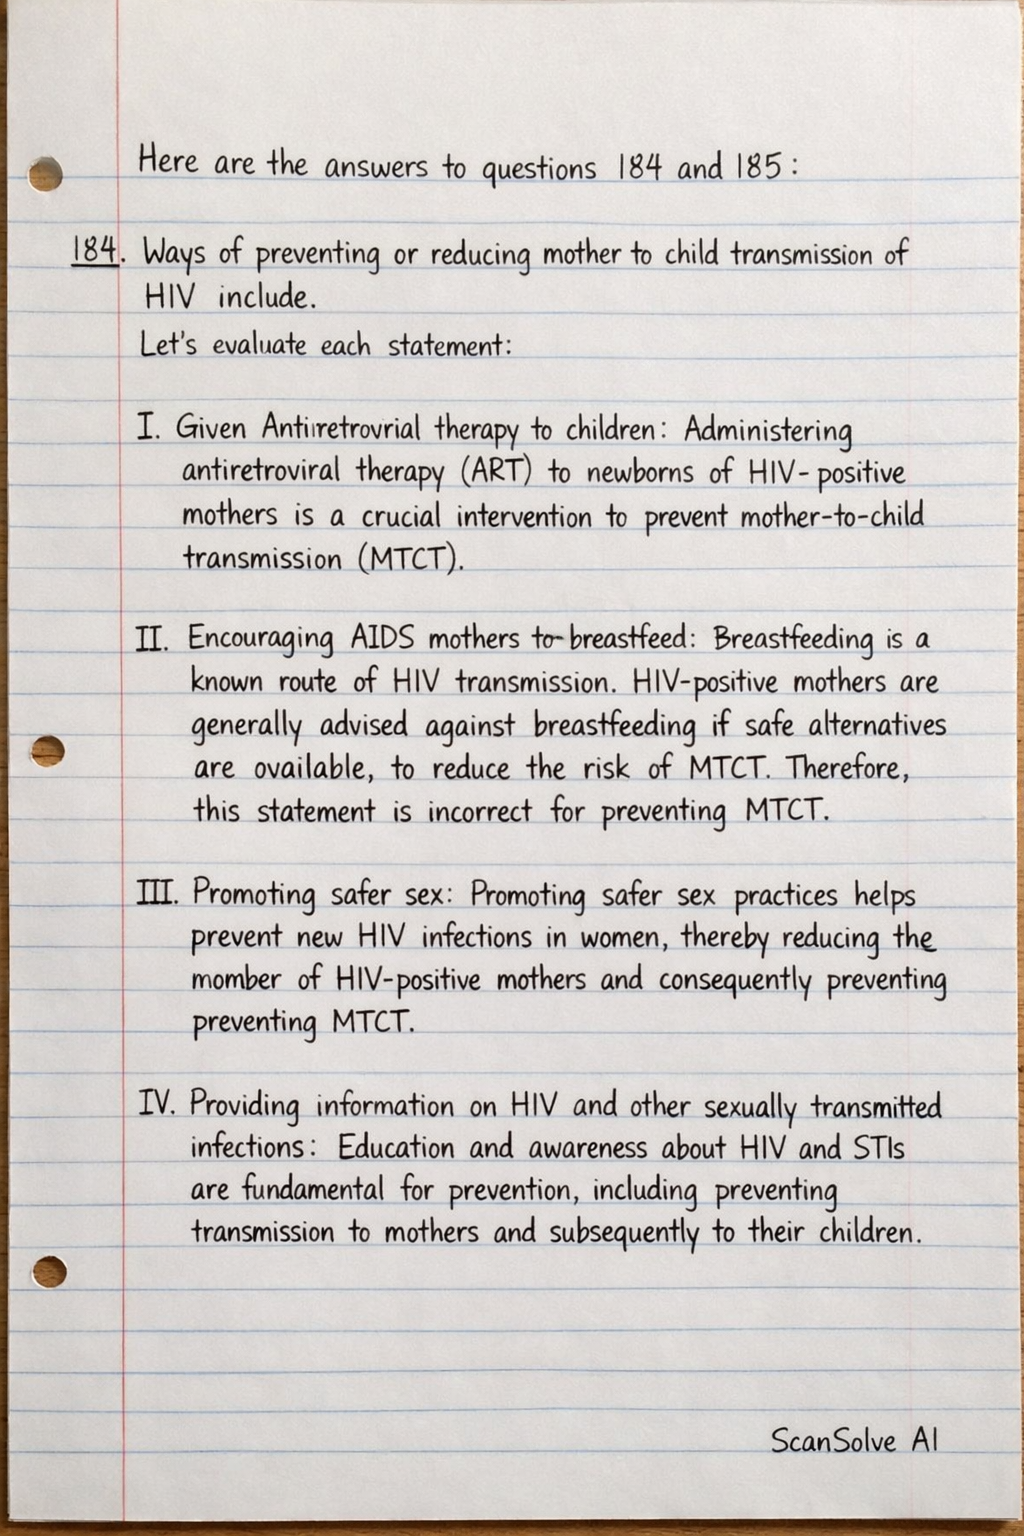 Here are the answers to questions 184 and 185:
184. Ways of preventing or reducing mother to child transmission of
HIV include.
Let's evaluate each statement:
I. Given Antiirretrovrial therapy to children: Administering
antiretroviral therapy (ART) to newborns of HIV-positive
mothers is a crucial intervention to prevent mother-to-child
transmission (MTCT).
II. Encouraging AIDS mothers to-breastfeed: Breastfeeding is a
known route of HIV transmission. HIV-positive mothers are
generally advised against breastfeeding if safe alternatives
are ovailable, to reduce the risk of MTCT. Therefore,
this statement is incorrect for preventing MTCT.
III. Promoting safer sex: Promoting safer sex practices helps
prevent new HIV infections in women, thereby reducing the
momber of HIV-positive mothers and consequently preventing
preventing MTCT.
IV. Providing information on HIV and other sexually transmitted
infections: Education and awareness about HIV and STIs
are fundamental for prevention, including preventing
transmission to mothers and subsequently to their children.
ScanSolve AI